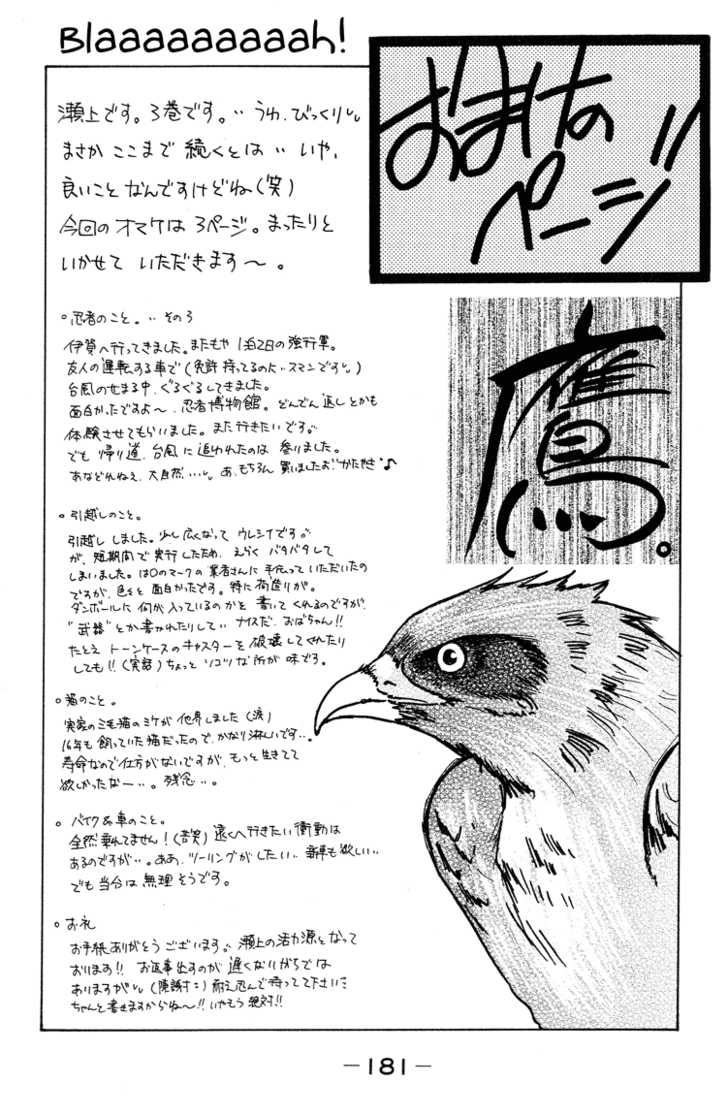 Blaaaaaaaaah!
おまけの
ページ!!
瀬上です。3巻です。‥うわ、びっくり
まさか ここまで 続くとは‥いや、
良いことなんですけどね(笑)
今回のオマケは 3ページ。まったりと
いかせて いただきます〜。
鷹。
○忍者のこと。‥その3
伊賀へ行ってきました。またもや 1泊2日の強行軍。
友人の運転する車で(免許 持ってるのに‥スマンです‥)
台風の せまる中、ぐるぐるしてきました。
面白かったですよ〜、忍者博物館。どんでん返しとかも
体験させてもらいました。また行きたいです。
でも 帰り道、台風に 追われたのは 参りました。
あなどれねえ、大自然…。あ、もちろん 買いましたよ"かたやき"♪
○引越しのこと。
引越し しました。少し広くなって ウレシイです。
が、短期間で実行したため、えらく バタバタして
しまいました。はOのマークの 業者さんに 手伝って いただいたの
ですが、色々と 面白かったです。特に荷造りが。
ダンボールに 何が入っているのかを 書いて くれるのですが、
"武器"とか書かれたりして‥ナイスだ、おばちゃん!!
たとえ トーンケースのキャスターを 破壊して くれたり
しても!!(実話)ちょっと ソコツな所が 味です。
○猫のこと。
実家の三毛猫のミケが 他界しました(涙)
16年も 飼っていた猫だったので、かなり淋しいです‥。
寿命なので仕方がないですが、もっと生きてて
欲しかったなー‥。残念‥。
○バイク&車のこと。
全然乗れてません!(苦笑)遠くへ行きたい衝動は
あるのですが‥。ああ、ツーリングがしたい‥新車も欲しい‥
でも当分は 無理そうです。
○お礼
お手紙ありがとう ございます。瀬上の活力源と なって
おります!! お返事出すのが 遅くなりがちでは
ありますが(陳謝)耐え忍んで待ってて下さい
ちゃんと書きますからね〜!!いやもう 絶対!!
—181—